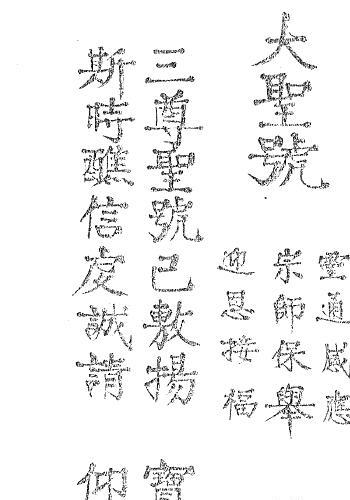 大聖號
靈通感應
宗師保舉
迎恩接福
三尊聖號已敷揚 寶
斯時醮信虔誠請 仰